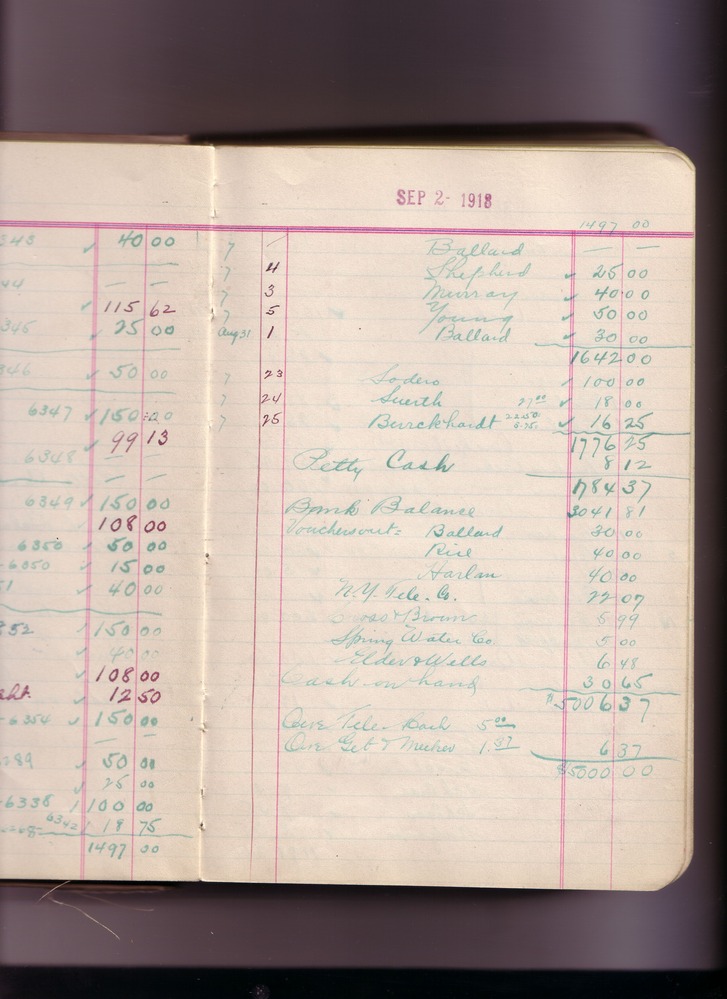 343 ✓ 40 00
44 — —
✓ 115 62
345 ✓ 25 00
346 ✓ 50 00
6347 ✓ 150 00
✓ 99 13
6348 ✓ — —
6349 ✓ 150 00
108 00
6350 ✓ 50 00
-6350 ✓ 15 00
51 ✓ 40 00
352 ✓ 150 00
✓ 40 00
✓ 108 00
✓ 12 50
-6354 ✓ 150 00
— —
289 ✓ 50 00
✓ 25 00
-6338 100 00
6342 18 75
1497 00
SEP 2- 1918
1497 00
7 — Ballard — —
7 4 Shepherd ✓ 25 00
7 3 Murray ✓ 40 00
7 5 Young ✓ 50 00
Aug 31 1 Ballard ✓ 30 00
1642 00
7 23 Sodero ✓ 100 00
7 24 Suerth ✓ 18 00
7 25 Burckhardt ✓ 16 25
1776 25
Petty Cash 8 12
1784 37
Bank Balance 3041 81
Vouchers out = Ballard 30 00
Rice 40 00
Harlan 40 00
N.Y. Tele. Co. 22 07
& Brown 5 99
Spring Water Co 5 00
Elder & Wells 6 48
Cash on hand 30 65
$5006 37
Owe Tele. 5 00
Owe Geb & 1.37 6 37
$5000 00